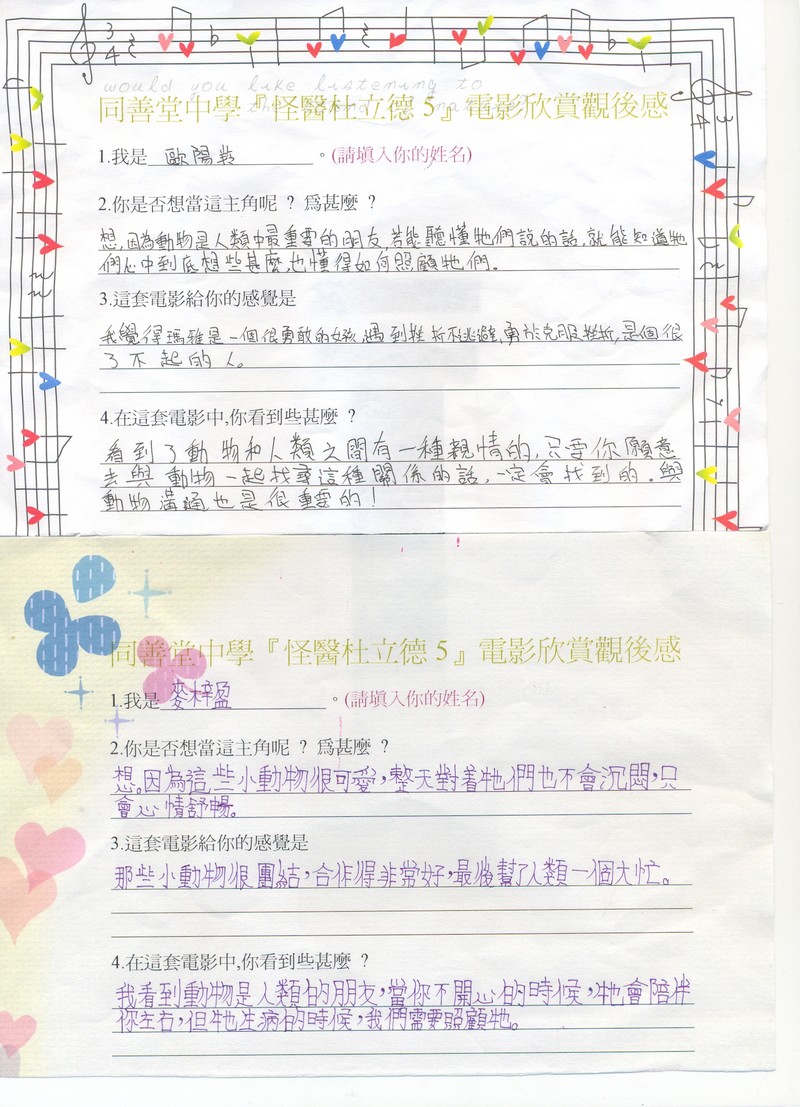 would you like listening to
同善堂中學『怪醫杜立德5』電影欣賞觀後感
1.我是 歐陽 。(請填入你的姓名)
2.你是否想當這主角呢 ? 爲甚麼 ?
想,因為動物是人類中最重要的朋友,若能聽懂牠們說的話,就能知道牠
們心中到底想些甚麼,也懂得如何照顧牠們。
3.這套電影給你的感覺是
我覺得瑪雅是一個很勇敢的女孩,遇到挫折不逃避,勇於克服挫折,是個很
了不起的人。
4.在這套電影中,你看到些甚麼 ?
看到了動物和人類之間有一種親情的,只要你願意
去與動物一起找尋這種關係的話,一定會找到的.與
動物溝通也是很重要的!
同善堂中學『怪醫杜立德5』電影欣賞觀後感
1.我是 麥梓盈 。(請填入你的姓名)
2.你是否想當這主角呢 ? 爲甚麼 ?
想。因為這些小動物很可愛,整天對着牠們也不會沉悶,只
會心情舒暢。
3.這套電影給你的感覺是
那些小動物很團結,合作得非常好,最後幫了人類一個大忙。
4.在這套電影中,你看到些甚麼 ?
我看到動物是人類的朋友,當你不開心的時候,牠會陪伴
你左右,但牠生病的時候,我們需要照顧牠。